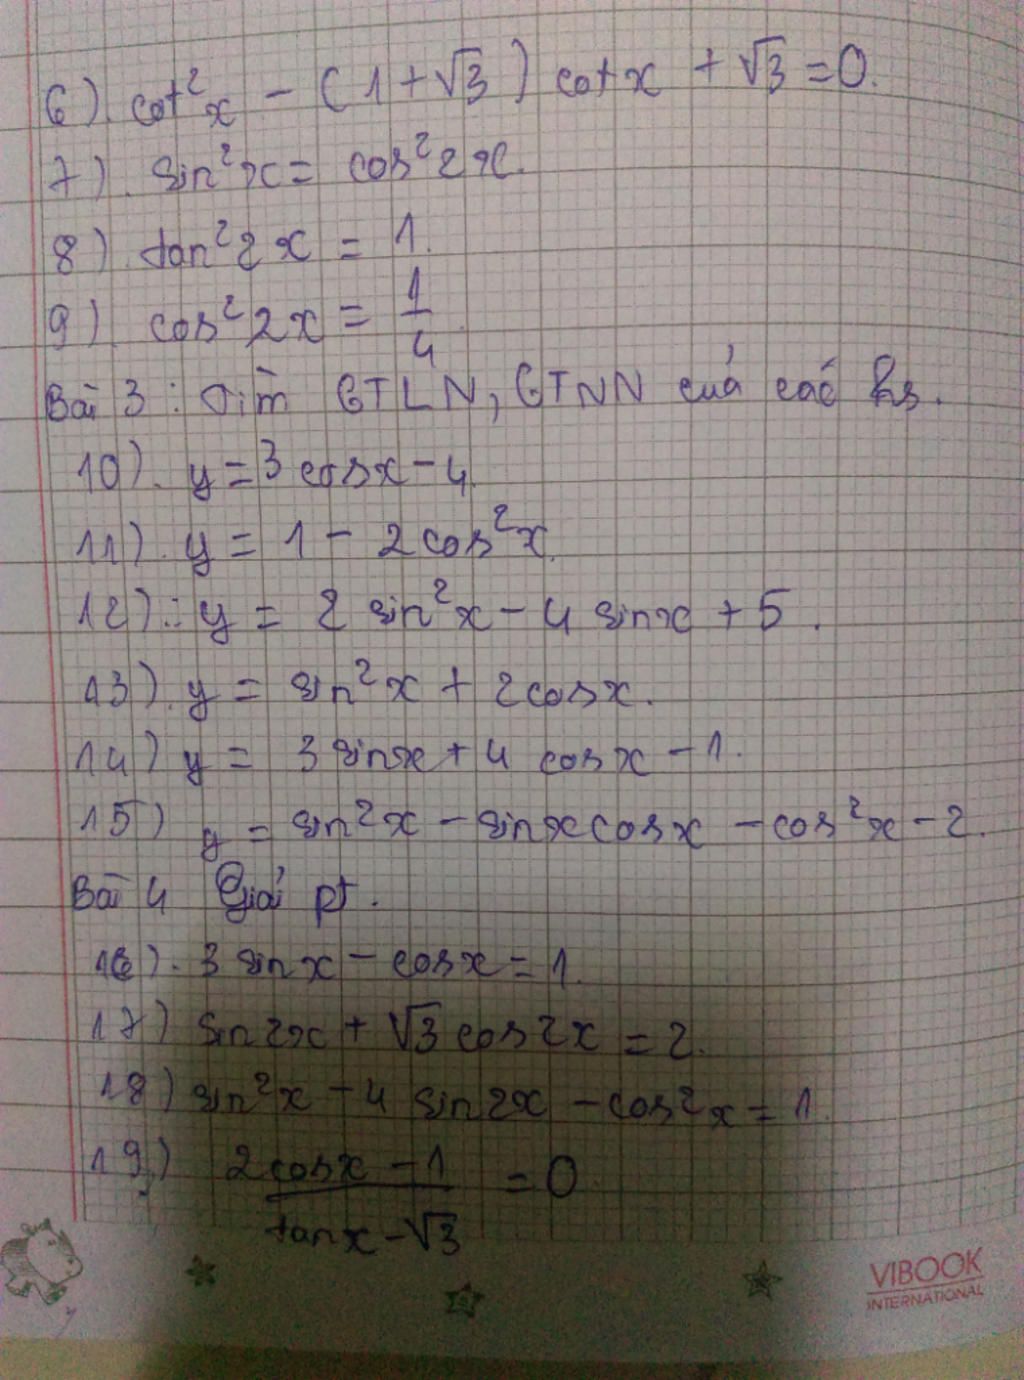 6) cot²x - (1 + √3) cotx + √3 = 0.
7) sin²x = cos²2x.
8) tan²2x = 1.
9) cos²2x = 1/4.
Bài 3 : Tìm GTLN, GTNN của các hs.
10) y = 3cosx - 4.
11) y = 1 - 2cos²x.
12) : y = 2 sin²x - 4 sinx + 5.
13) y = sin²x + 2cosx.
14) y = 3sinx + 4 cosx - 1.
15) y = sin²x - sinxcosx - cos²x - 2.
Bài 4 Giải pt.
16) 3 sinx - cosx = 1.
17) sin2x + √3 cos2x = 2.
18) sin²x - 4 sin2x - cos²x = 1.
19) (2cosx - 1)/(tanx - √3) = 0
VIBOOK
INTERNATIONAL